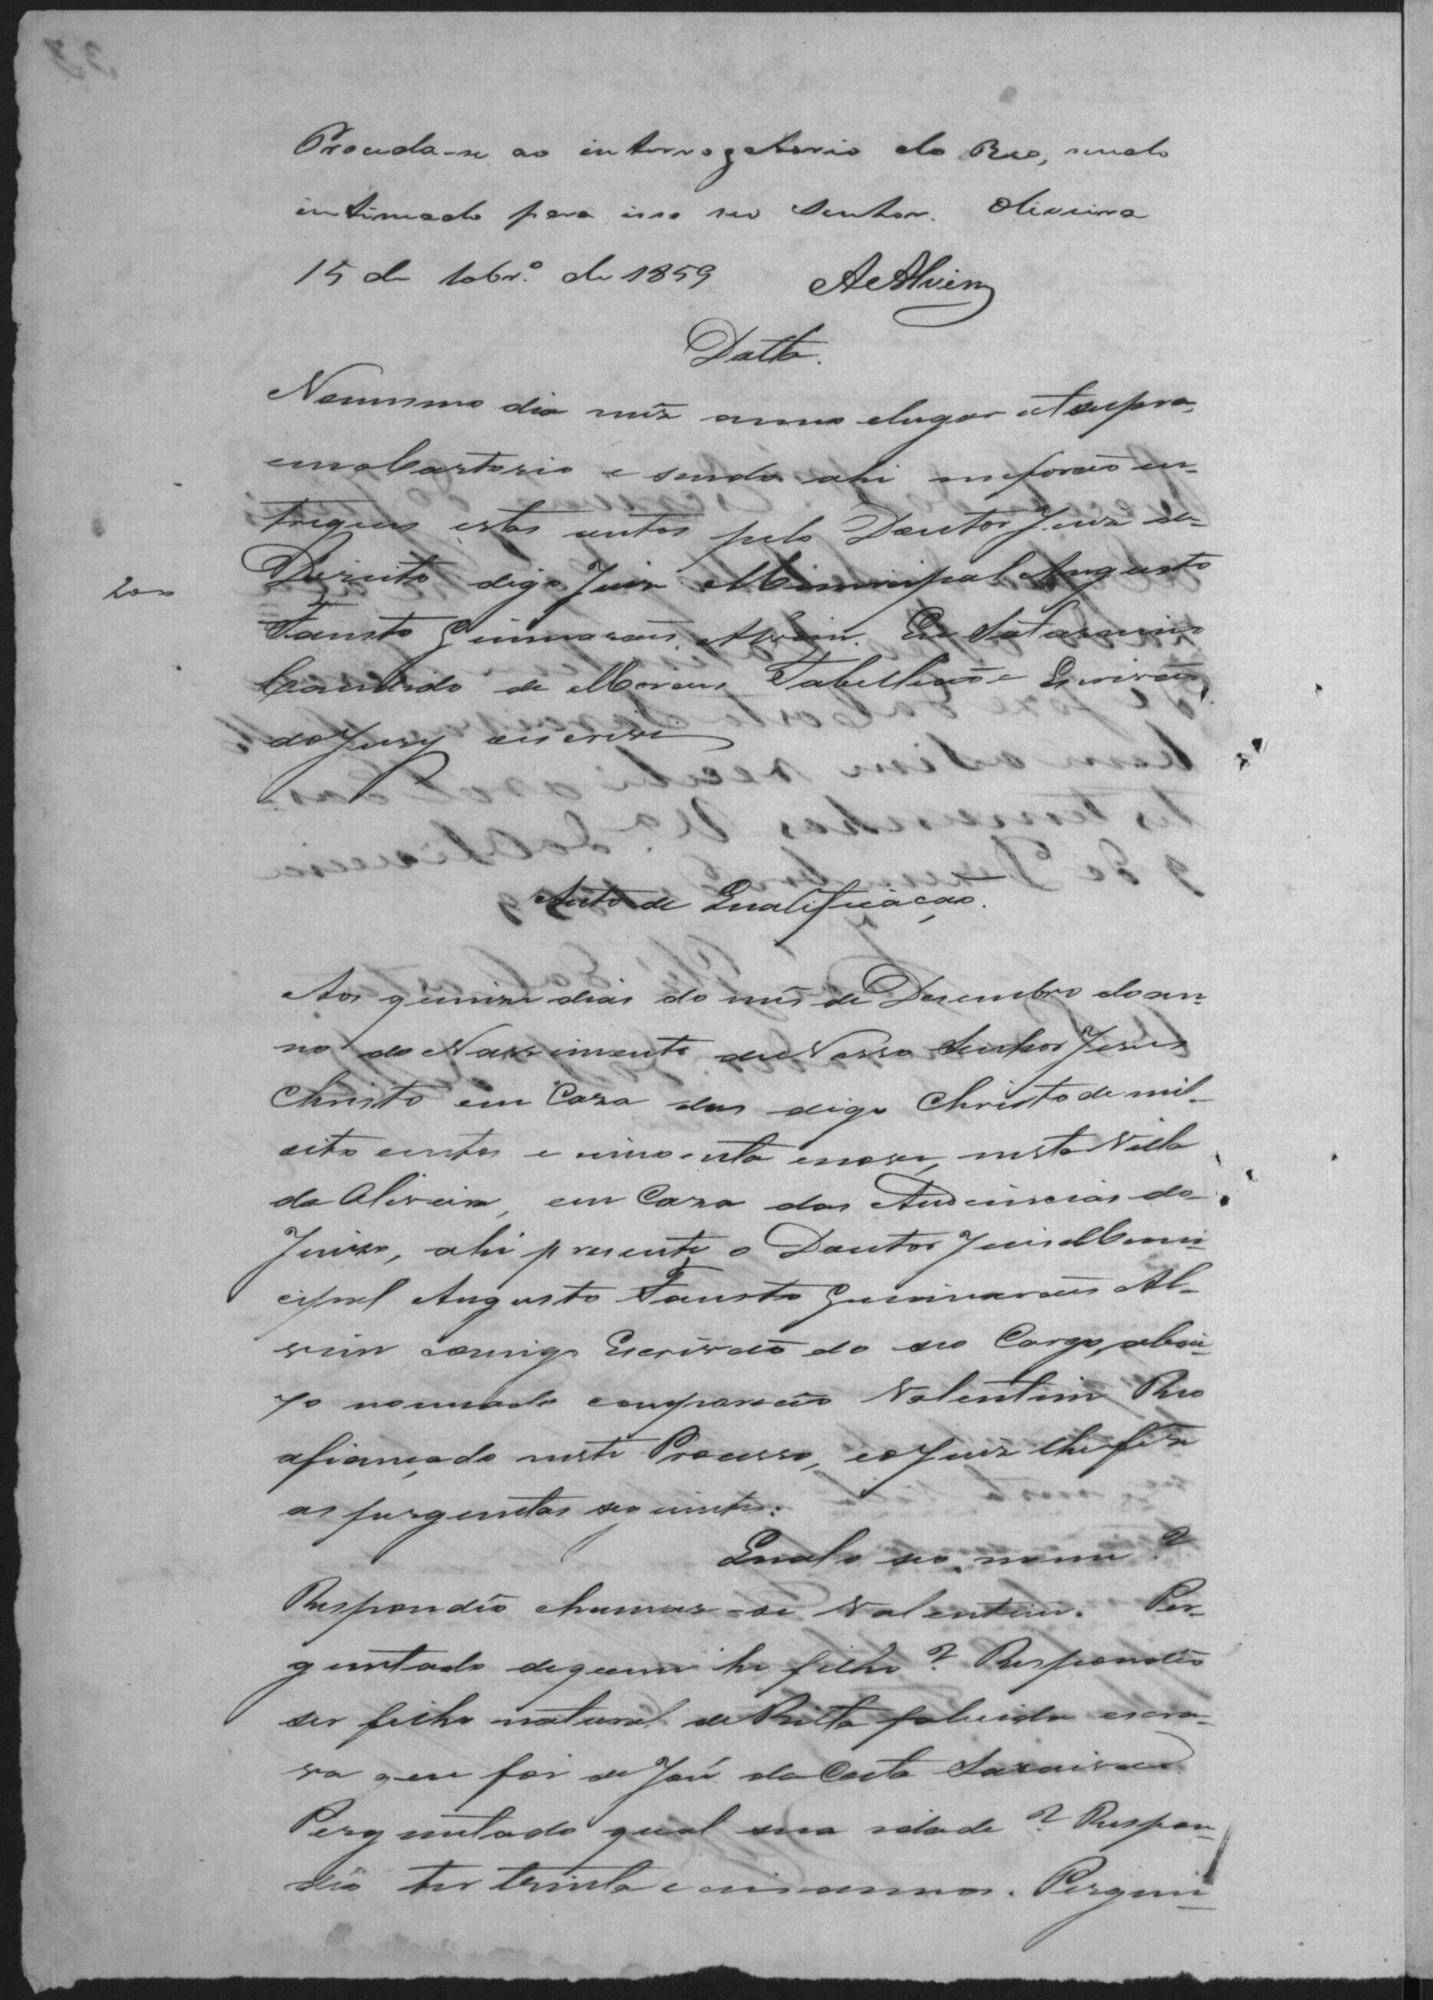 Proceda-se ao interrogatorio do Reo, sendo
intimado para isso seu Senhor. Oliveira
15 de 10br.º de 1859 A e Alvim
Datta.
No mesmo dia mêz anno elugar etsupra,
emoCartorio e sendo ahi meforão en-
tregues estes autos pelo Doutor Juiz de-
Direito digo Juiz Municipal Augusto
200
Fausto Guimarães Alvim. Eu Saturnino
Candido de Moraes Tabellião e Escrivão
doJury escrivi
Auto de Qualificação.
Aos quinze dias do mês de Dezembro doan-
no do Nascimento deNosso Senhor Jesus
Christo em Caza das digo Christo de mil
oito centos e cincoenta enove, nesta Villa
da Oliveira, em Caza das Audiencias do
Juizo, ahi presente o Doutor Juis Muni-
cipal Augusto Fausto Guimarães Al-
vim comigo Escrivão do seo Cargo, abai-
xo nomeado compareceo Valentim Reo
afiançado neste Processo, eoJuiz lhefêz
as perguntas seguintes:
Qualo seo nome?
Respondêo chamar-se Valentim. Per-
guntado dequem he filho? Respondêo
ser filho natural deRitta falecida escra-
va que foi de José da Costa Saraiva
Perguntado qual sua idade? Respon-
dêo ter trinta e annos. Pergun-